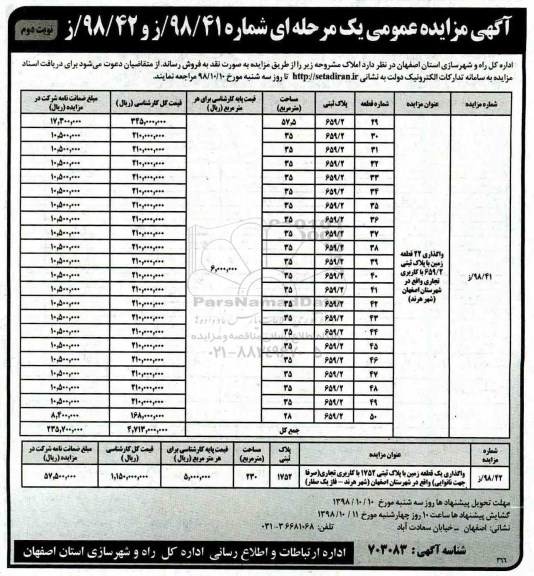 آگهی مزایده عمومی یک مرحله ای شماره ۹۸/۴۱/ز و ۹۸/۴۲/ز
نوبت دوم
اداره کل راه و شهرسازی استان اصفهان در نظر دارد املاک مشروحه زیر را از طریق مزایده به صورت نقد به فروش رساند. از متقاضیان دعوت می‌شود برای دریافت اسناد
مزایده به سامانه تدارکات الکترونیک دولت به نشانی http://setadiran.ir تا روز سه شنبه مورخ ۹۸/۱۰/۱۰ مراجعه نمایند.
شماره مزایده عنوان مزایده شماره قطعه پلاک ثبتی مساحت (مترمربع) قیمت پایه کارشناسی برای هر متر مربع (ریال) قیمت کل کارشناسی (ریال) مبلغ ضمانت نامه شرکت در مزایده (ریال)
۹۸/۴۱/ز
واگذاری ۲۲ قطعه زمین با پلاک ثبتی ۶۵۹/۲ با کاربری تجاری واقع در شهرستان اصفهان (شهر هرند)
۶,۰۰۰,۰۰۰
۲۹ ۶۵۹/۲ ۵۷,۵ ۳۴۵,۰۰۰,۰۰۰ ۱۷,۳۰۰,۰۰۰
۳۰ ۶۵۹/۲ ۳۵ ۲۱۰,۰۰۰,۰۰۰ ۱۰,۵۰۰,۰۰۰
۳۱ ۶۵۹/۲ ۳۵ ۲۱۰,۰۰۰,۰۰۰ ۱۰,۵۰۰,۰۰۰
۳۲ ۶۵۹/۲ ۳۵ ۲۱۰,۰۰۰,۰۰۰ ۱۰,۵۰۰,۰۰۰
۳۳ ۶۵۹/۲ ۳۵ ۲۱۰,۰۰۰,۰۰۰ ۱۰,۵۰۰,۰۰۰
۳۴ ۶۵۹/۲ ۳۵ ۲۱۰,۰۰۰,۰۰۰ ۱۰,۵۰۰,۰۰۰
۳۵ ۶۵۹/۲ ۳۵ ۲۱۰,۰۰۰,۰۰۰ ۱۰,۵۰۰,۰۰۰
۳۶ ۶۵۹/۲ ۳۵ ۲۱۰,۰۰۰,۰۰۰ ۱۰,۵۰۰,۰۰۰
۳۷ ۶۵۹/۲ ۳۵ ۲۱۰,۰۰۰,۰۰۰ ۱۰,۵۰۰,۰۰۰
۳۸ ۶۵۹/۲ ۳۵ ۲۱۰,۰۰۰,۰۰۰ ۱۰,۵۰۰,۰۰۰
۳۹ ۶۵۹/۲ ۳۵ ۲۱۰,۰۰۰,۰۰۰ ۱۰,۵۰۰,۰۰۰
۴۰ ۶۵۹/۲ ۳۵ ۲۱۰,۰۰۰,۰۰۰ ۱۰,۵۰۰,۰۰۰
۴۱ ۶۵۹/۲ ۳۵ ۲۱۰,۰۰۰,۰۰۰ ۱۰,۵۰۰,۰۰۰
۴۲ ۶۵۹/۲ ۳۵ ۲۱۰,۰۰۰,۰۰۰ ۱۰,۵۰۰,۰۰۰
۴۳ ۶۵۹/۲ ۳۵ ۲۱۰,۰۰۰,۰۰۰ ۱۰,۵۰۰,۰۰۰
۴۴ ۶۵۹/۲ ۳۵ ۲۱۰,۰۰۰,۰۰۰ ۱۰,۵۰۰,۰۰۰
۴۵ ۶۵۹/۲ ۳۵ ۲۱۰,۰۰۰,۰۰۰ ۱۰,۵۰۰,۰۰۰
۴۶ ۶۵۹/۲ ۳۵ ۲۱۰,۰۰۰,۰۰۰ ۱۰,۵۰۰,۰۰۰
۴۷ ۶۵۹/۲ ۳۵ ۲۱۰,۰۰۰,۰۰۰ ۱۰,۵۰۰,۰۰۰
۴۸ ۶۵۹/۲ ۳۵ ۲۱۰,۰۰۰,۰۰۰ ۱۰,۵۰۰,۰۰۰
۴۹ ۶۵۹/۲ ۳۵ ۲۱۰,۰۰۰,۰۰۰ ۱۰,۵۰۰,۰۰۰
۵۰ ۶۵۹/۲ ۲۸ ۱۶۸,۰۰۰,۰۰۰ ۸,۴۰۰,۰۰۰
جمع کل ۴,۷۱۳,۰۰۰,۰۰۰ ۲۳۵,۷۰۰,۰۰۰
ParsNamadData
۰۲۱-۸۸۳۴۹۶۷۰-۵
شماره مزایده عنوان مزایده پلاک ثبتی مساحت (مترمربع) قیمت پایه کارشناسی برای هر متر مربع (ریال) قیمت کل کارشناسی (ریال) مبلغ ضمانت نامه شرکت در مزایده (ریال)
۹۸/۴۲/ز واگذاری یک قطعه زمین با پلاک ثبتی ۱۷۵۲ با کاربری تجاری(صرفا جهت نانوایی) واقع در شهرستان اصفهان (شهر هرند – فاز یک صفار) ۱۷۵۲ ۲۳۰ ۵,۰۰۰,۰۰۰ ۱,۱۵۰,۰۰۰,۰۰۰ ۵۷,۵۰۰,۰۰۰
مهلت تحویل پیشنهادها روز سه شنبه مورخ ۱۰ / ۱۰ / ۱۳۹۸
گشایش پیشنهادها ساعت ۱۰ روز چهارشنبه مورخ ۱۱ / ۱۰ / ۱۳۹۸
نشانی: اصفهان – خیابان سعادت آباد تلفن: ۳۶۶۸۱۰۶۸-۰۳۱
شناسه آگهی: ۷۰۳۰۸۳
اداره ارتباطات و اطلاع رسانی اداره کل راه و شهرسازی استان اصفهان
۳۶۶